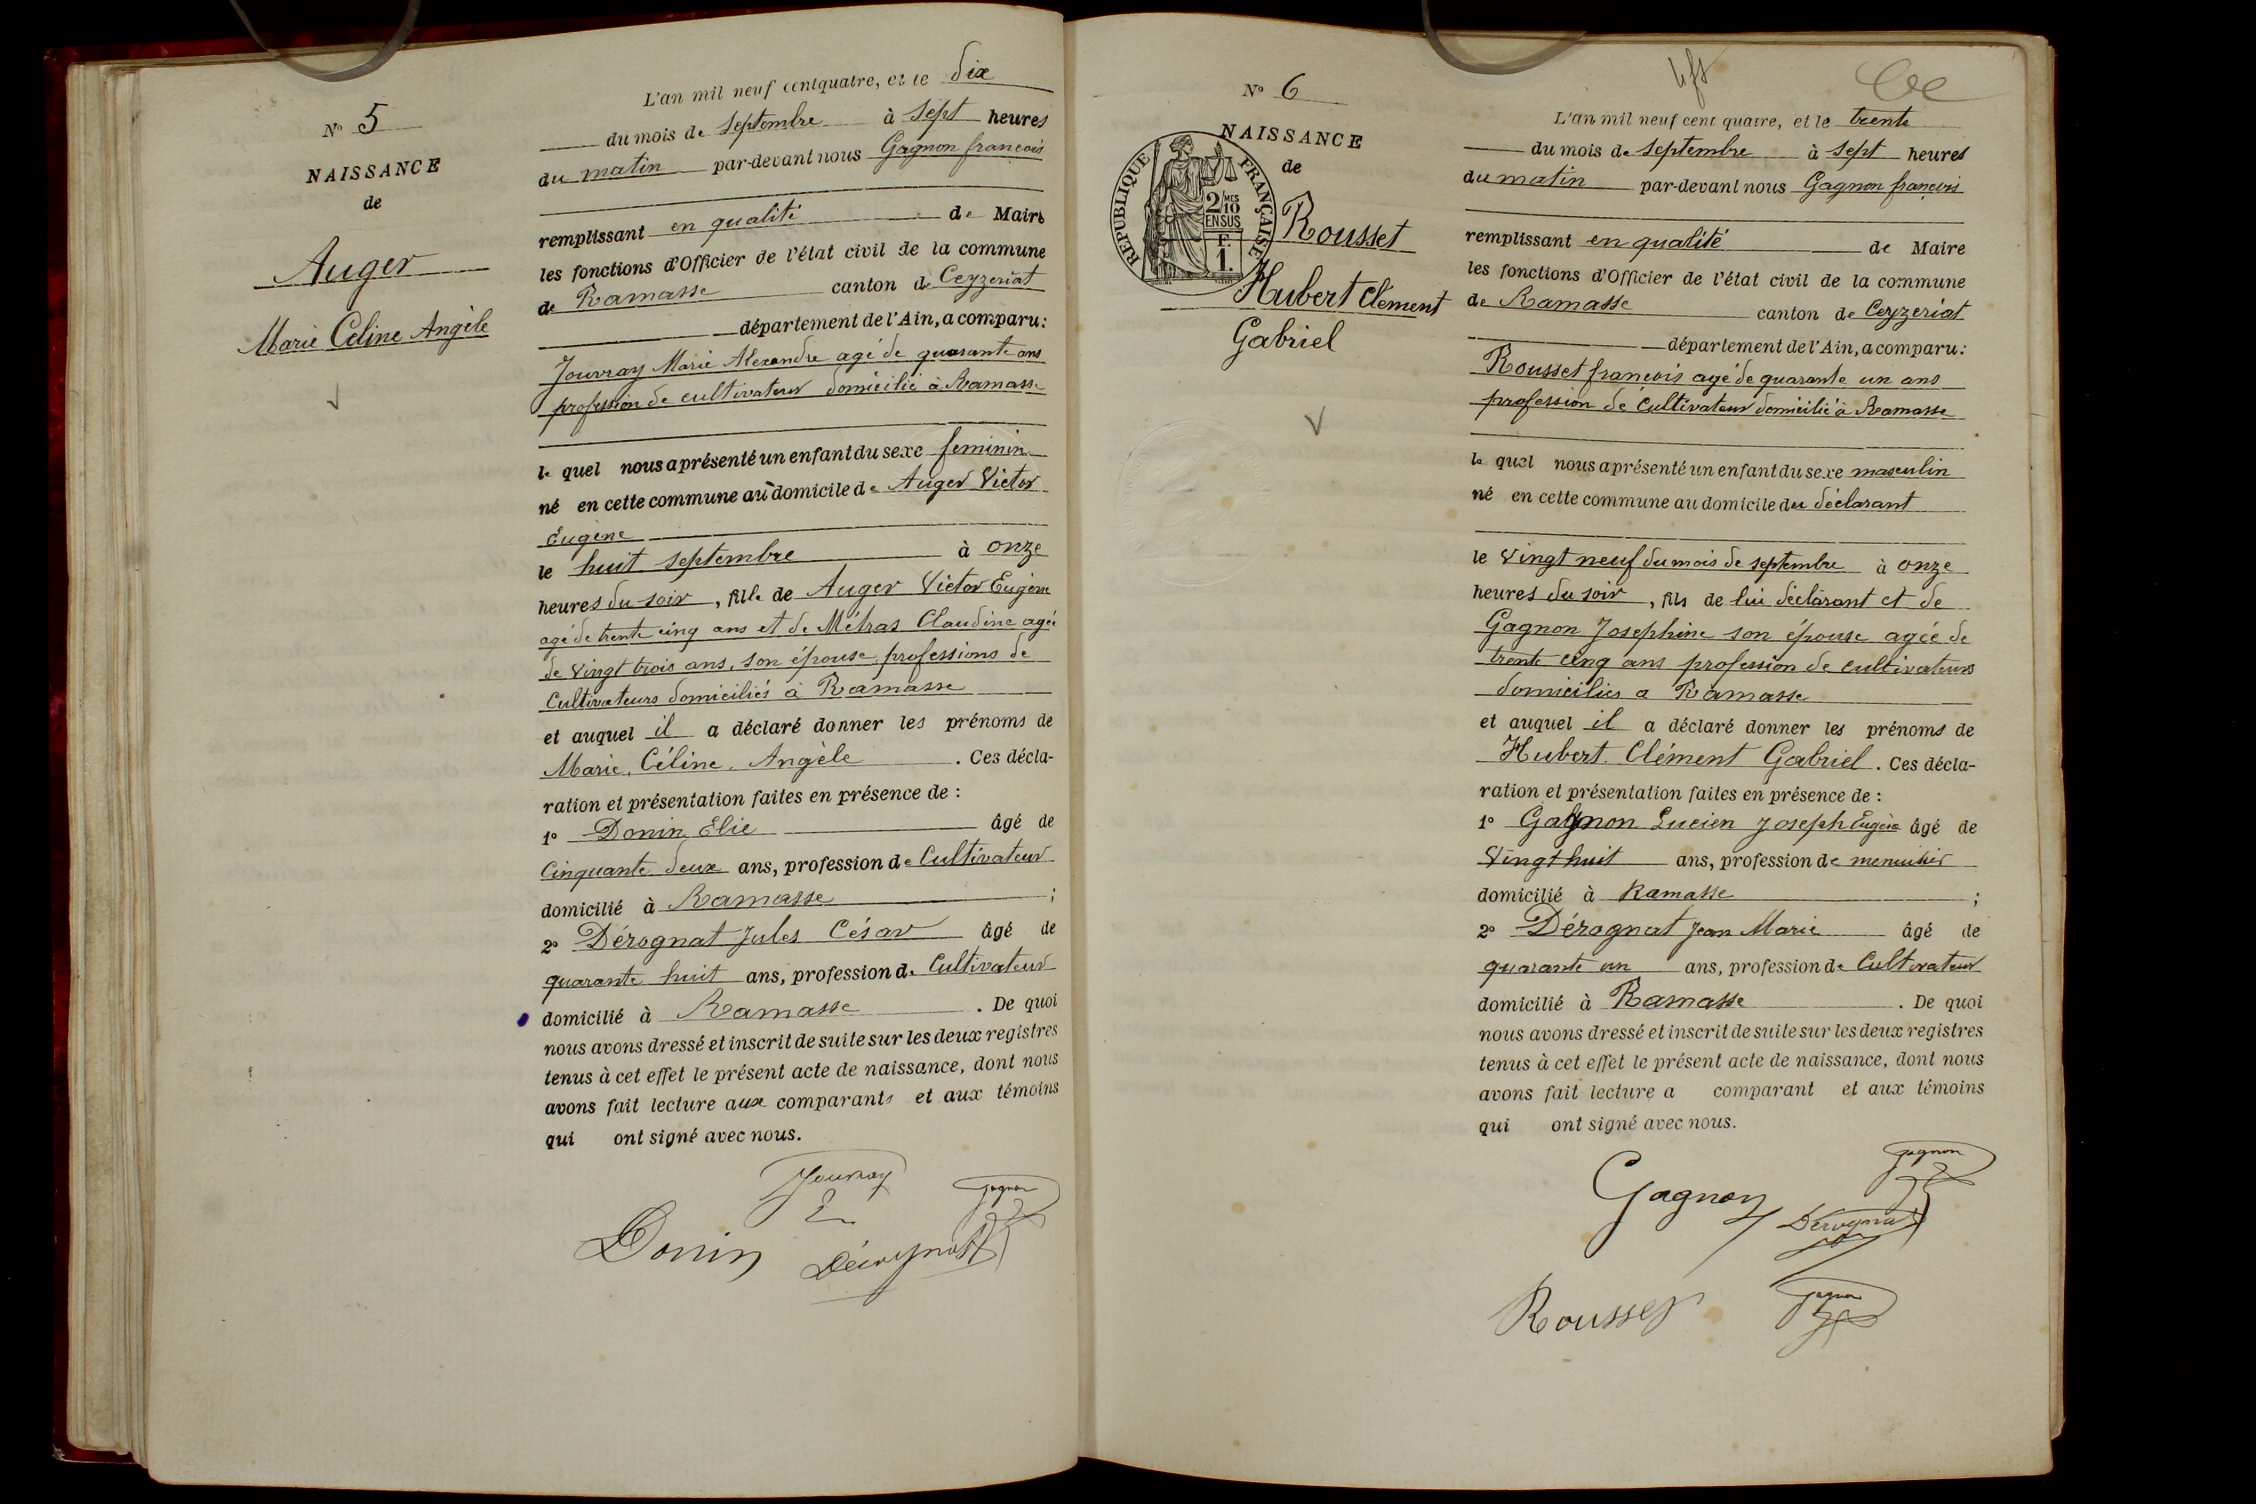 N° 5
NAISSANCE
de
Auger
Marie Céline Angèle
L'an mil neuf cent quatre, et le dix
du mois de septembre à sept heures
du matin par-devant nous Gagnon françois
remplissant en qualité de Maire
les fonctions d'Officier de l'état civil de la commune
de Ramasse canton de Ceyzeriat
département de l'Ain, a comparu:
Jouvray Marie Alexandre agé de quarante ans
profession de cultivateur domicilié à Ramasse
le quel nous a présenté un enfant du sexe feminin
né en cette commune au domicile de Auger Victor
Eugène
le huit septembre à onze
heures du soir, fille de Auger Victor Eugène
agé de trente cinq ans et de Métras Claudine agée
de vingt trois ans, son épouse professions de
Cultivateurs domiciliés à Ramasse
et auquel il a déclaré donner les prénoms de
Marie, Céline, Angèle. Ces décla-
ration et présentation faites en présence de :
1° Donin Elie âgé de
Cinquante deux ans, profession de Cultivateur
domicilié à Ramasse ;
2° Dérognat Jules César âgé de
quarante huit ans, profession de Cultivateur
domicilié à Ramasse . De quoi
nous avons dressé et inscrit de suite sur les deux registres
tenus à cet effet le présent acte de naissance, dont nous
avons fait lecture aux comparants et aux témoins
qui ont signé avec nous.
Jouvray Gagnon
Donin Dérognat
N° 6
NAISSANCE
de
RÉPUBLIQUE FRANÇAISE
2/10 MES
EN SUS
F.
1.
Rousset
Hubert Clément
Gabriel
L'an mil neuf cent quatre, et le trente
du mois de septembre à sept heures
du matin par-devant nous Gagnon françois
remplissant en qualité de Maire
les fonctions d'Officier de l'état civil de la commune
de Ramasse canton de Ceyzeriat
département de l'Ain, a comparu:
Rousset françois agé de quarante un ans
profession de Cultivateur domicilié à Ramasse
le quel nous a présenté un enfant du sexe masculin
né en cette commune au domicile du déclarant
le vingt neuf du mois de septembre à onze
heures du soir, fils de lui déclarant et de
Gagnon Josephine son épouse agée de
trente cinq ans profession de cultivateurs
domiciliés a Ramasse
et auquel il a déclaré donner les prénoms de
Hubert Clément Gabriel. Ces décla-
ration et présentation faites en présence de :
1° Gagnon Lucien Joseph Eugène âgé de
Vingt huit ans, profession de menuisier
domicilié à Ramasse ;
2° Dérognat Jean Marie âgé de
quarante un ans, profession de Cultivateur
domicilié à Ramasse . De quoi
nous avons dressé et inscrit de suite sur les deux registres
tenus à cet effet le présent acte de naissance, dont nous
avons fait lecture a comparant et aux témoins
qui ont signé avec nous.
Gagnon
Gagnon Dérognat
Rousset Gagnon